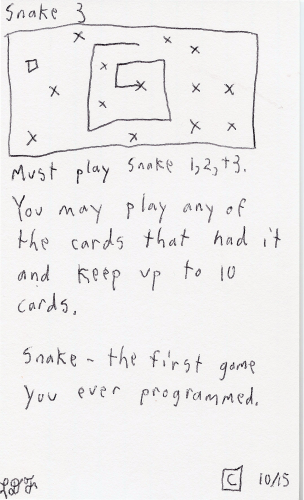 Snake 3
Must play Snake 1,2,+3.
You may play any of
the cards that had it
and keep up to 10
cards.
Snake - the first game
you ever programmed.
C 10/15